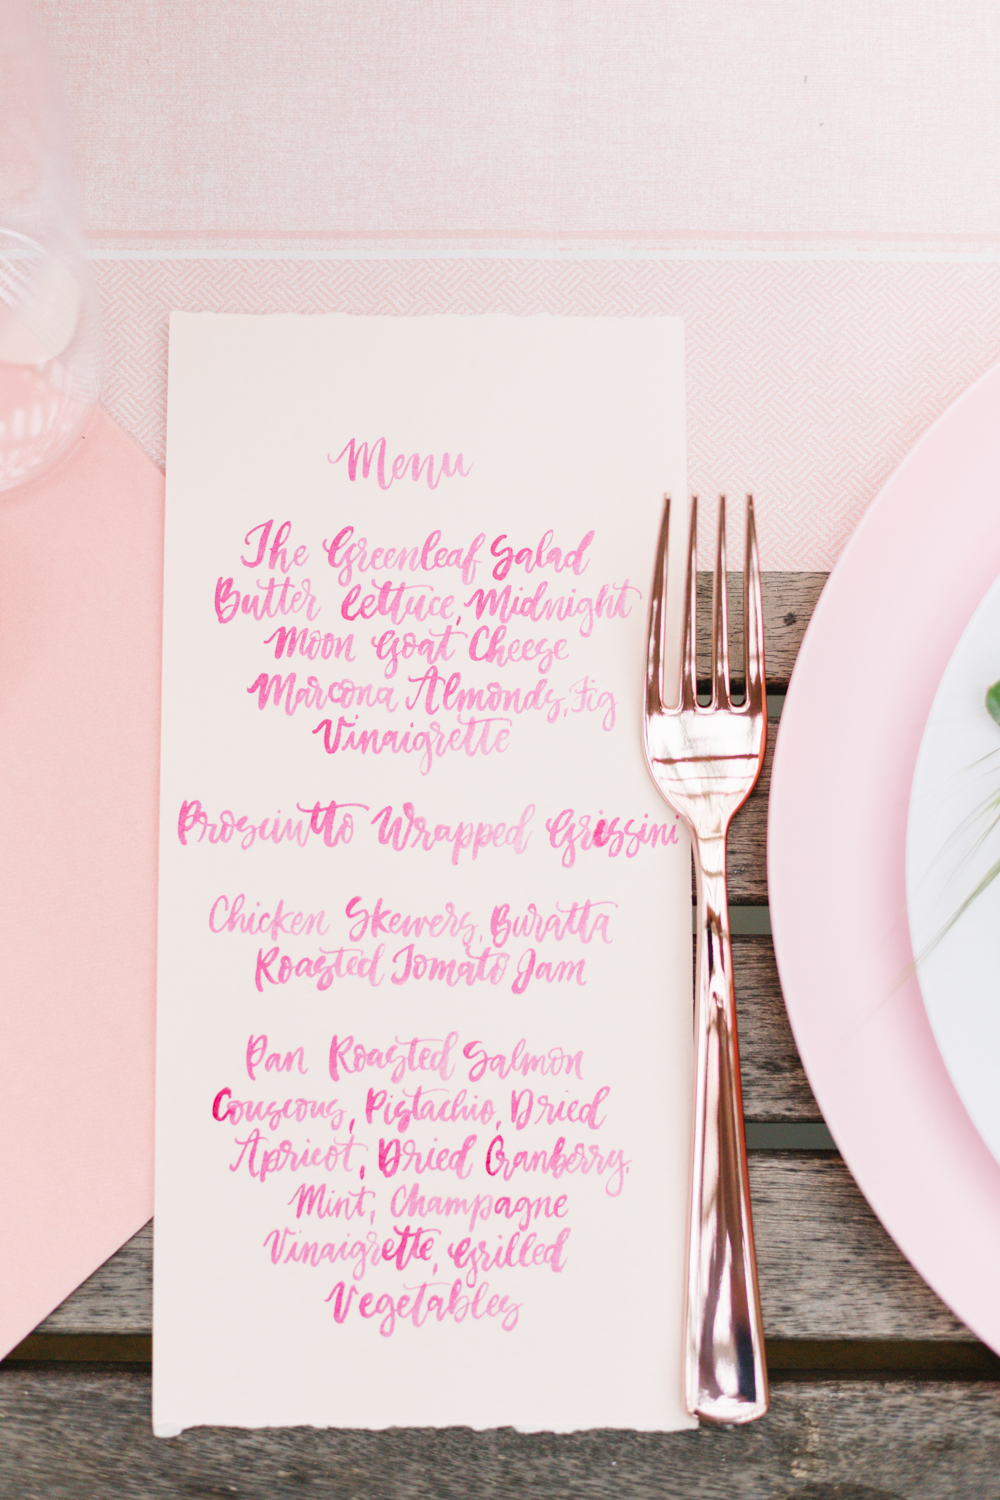 Menu
The Greenleaf Salad
Butter Lettuce, Midnight
Moon Goat Cheese
Marcona Almonds, Fig
Vinaigrette
Prosciutto Wrapped Grissini
Chicken Skewers, Buratta
Roasted Tomato Jam
Pan Roasted Salmon
Couscous, Pistachio, Dried
Apricot, Dried Cranberry,
Mint, Champagne
Vinaigrette, Grilled
Vegetables